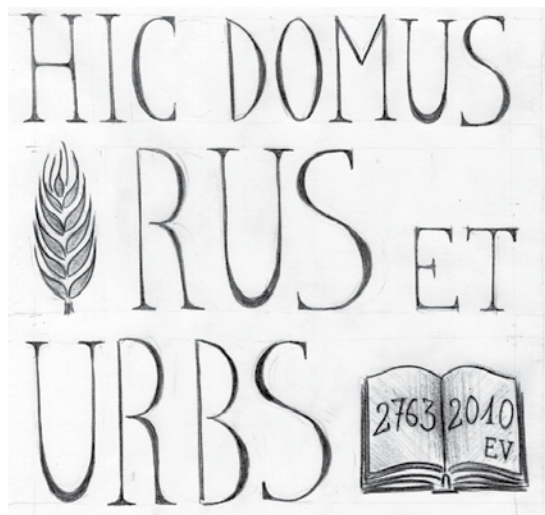 HIC DOMUS
RUS ET
URBS
2763 2010
EV